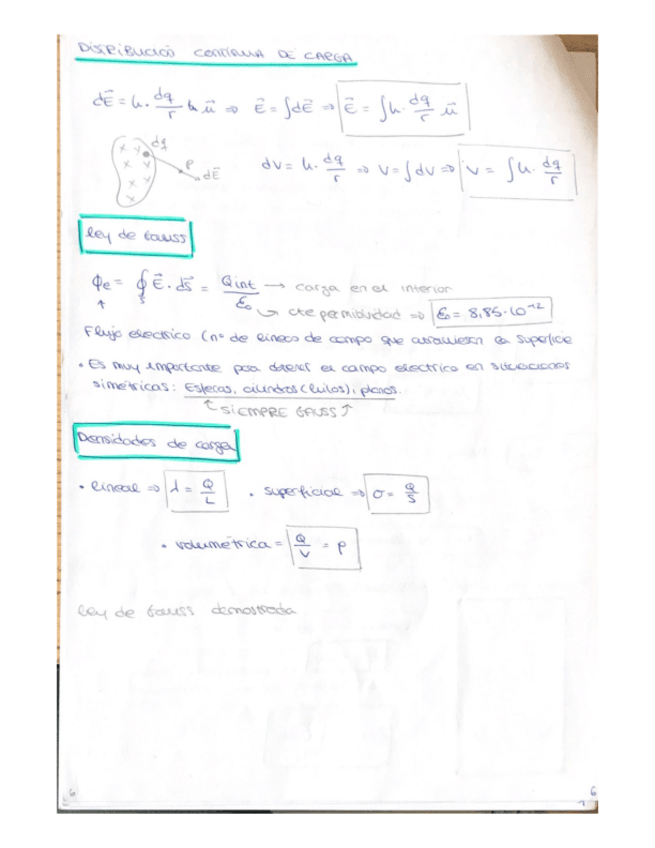 DISTRIBUCIÓ CONTINUA DE CARGA
dE⃗ = k · dq/r u⃗ ⇒ E⃗ = ∫dE⃗ ⇒ E⃗ = ∫k · dq/r u⃗
dq
P
dE⃗
dV = k · dq/r ⇒ V = ∫dV ⇒ V = ∫k · dq/r
Ley de Gauss
Φe = ∮s E⃗ · ds⃗ = Qint/ε₀ → carga en el interior
↳ cte permividad ⇒ ε₀ = 8,85·10⁻¹²
Flujo electrico (nº de lineas de campo que atraviesan la superficie
• Es muy importante para obtener el campo electrico en situaciones
simétricas: Esferas, cilindros (hilos), planos.
↑ SIEMPRE GAUSS ↑
Densidades de carga
• lineal ⇒ λ = Q/L • superficial ⇒ σ = Q/S
• volumétrica = Q/V = ρ
Ley de Gauss demostrada
6 6
1